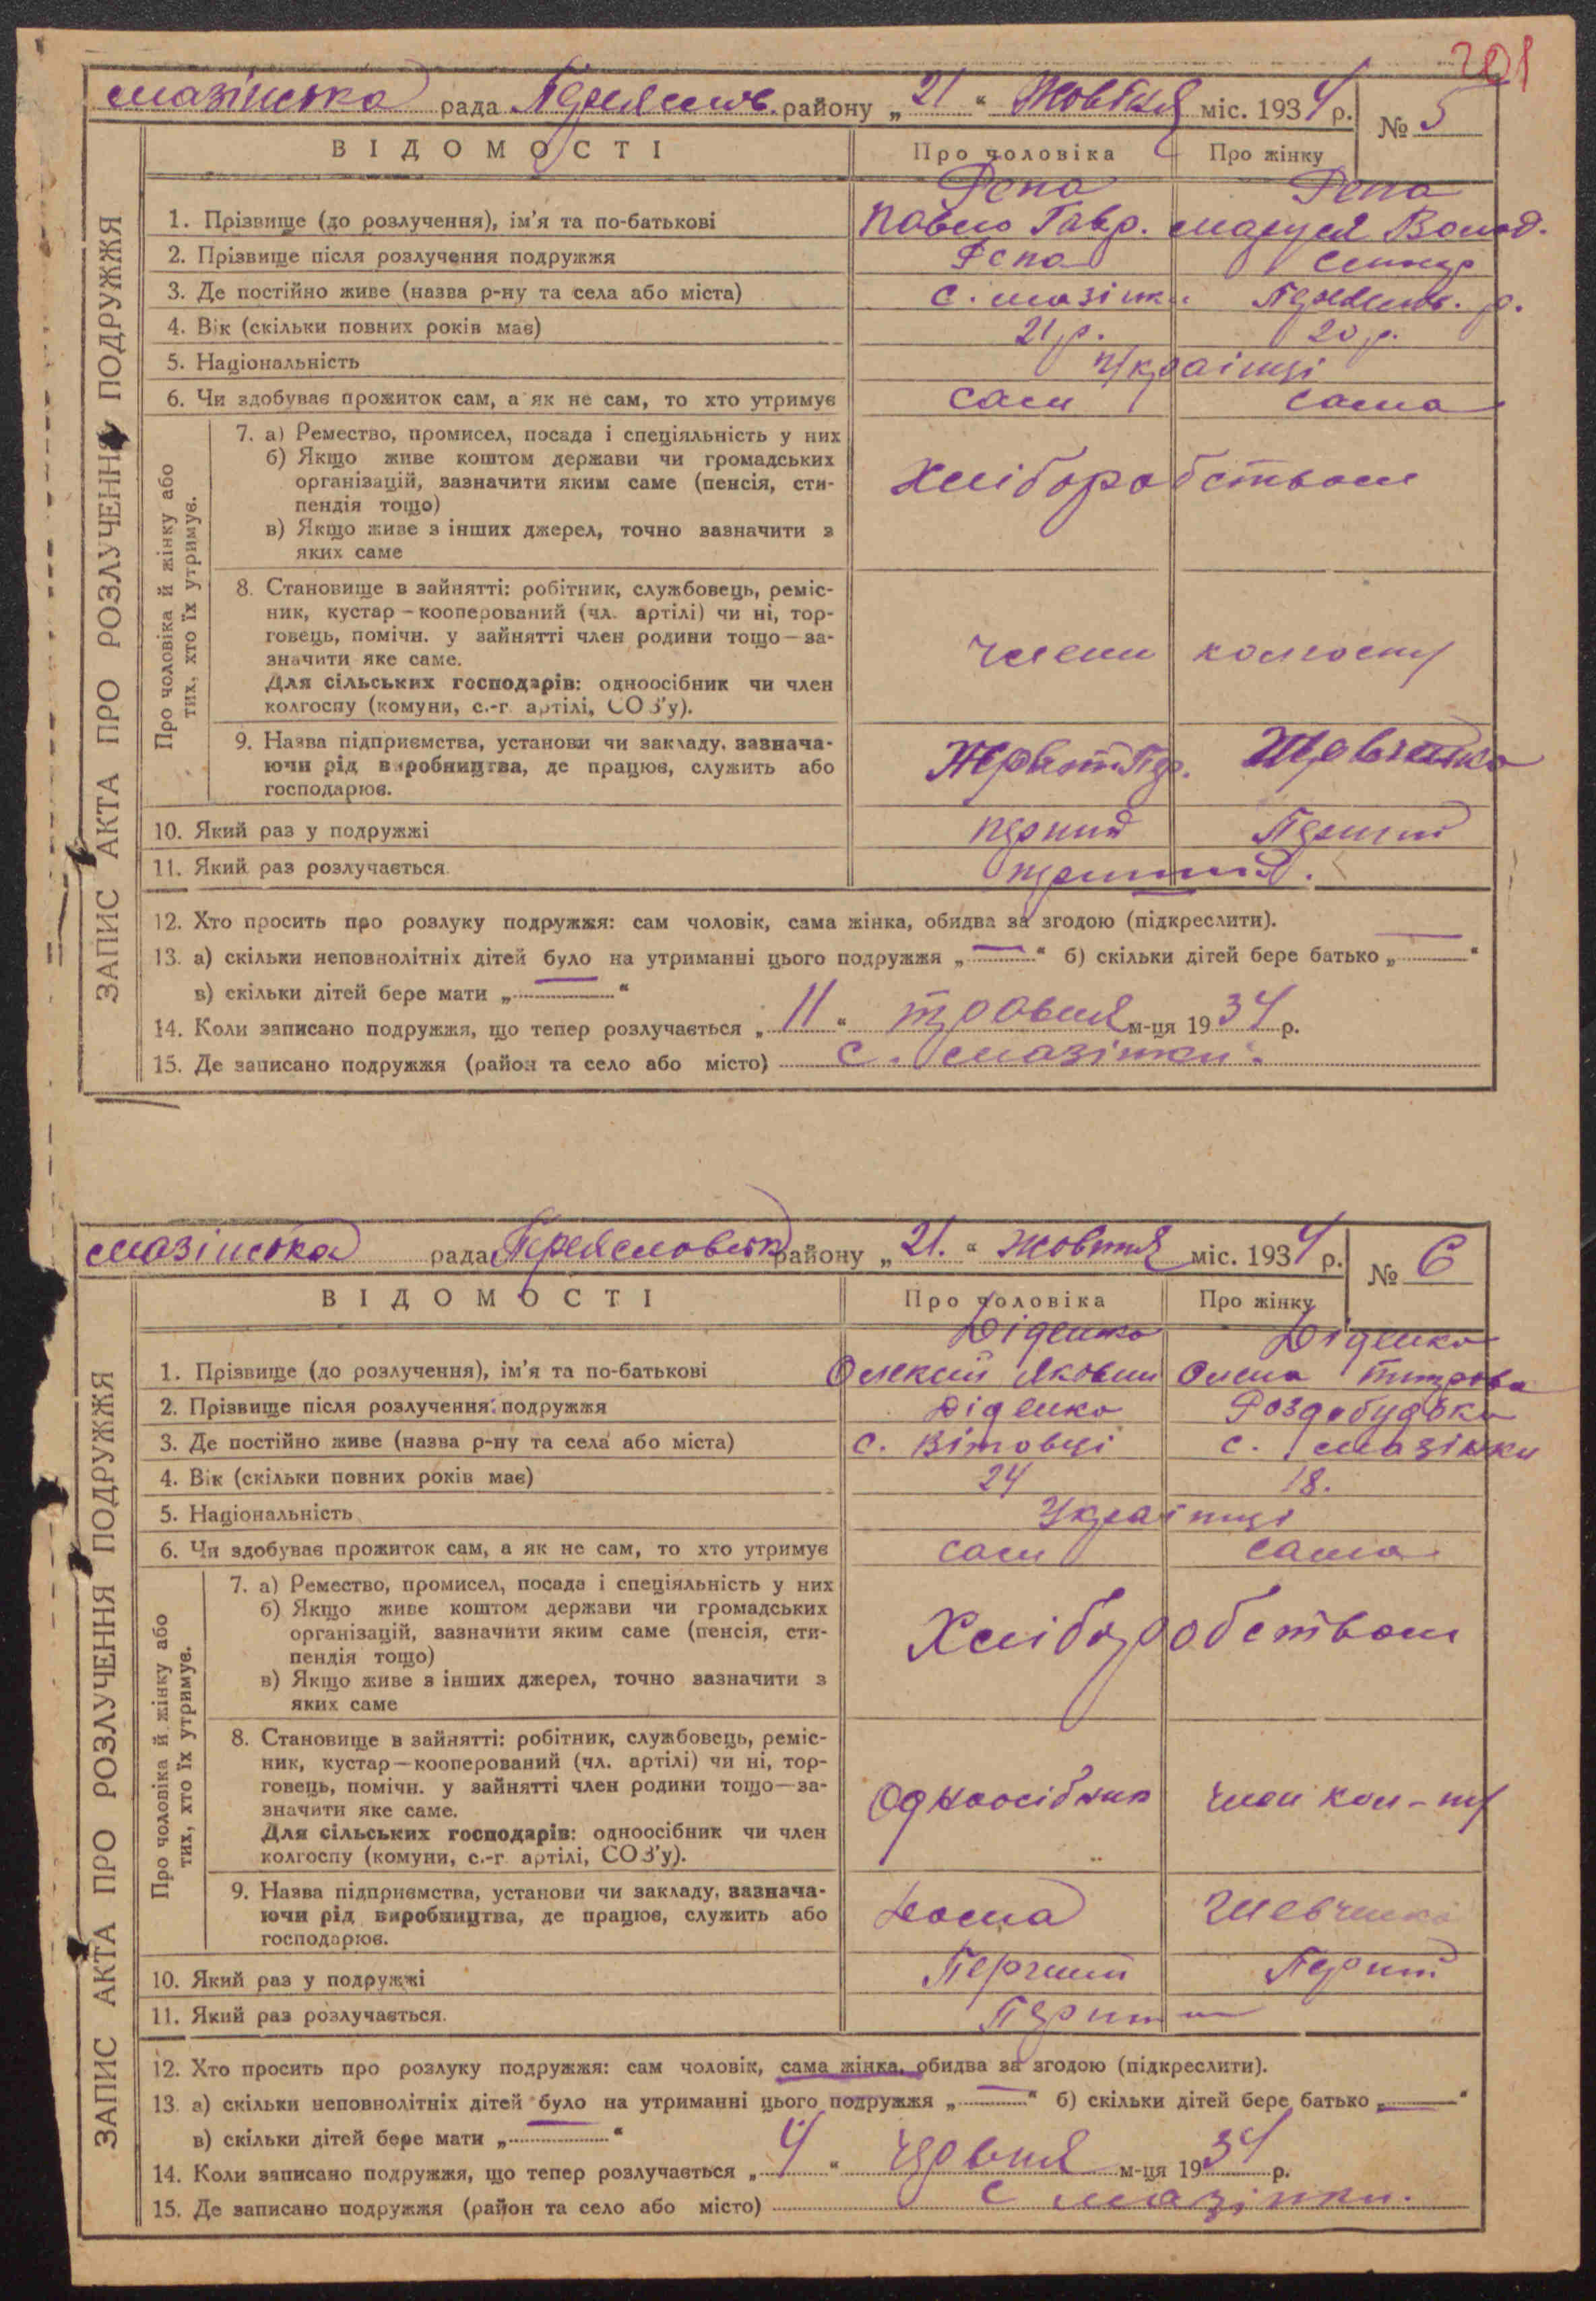 201
Мазінська рада Переяслов. району „21“ Жовтня міс. 1934 р. № 5
ВІДОМОСТІ
Про чоловіка
Про жінку
ЗАПИС АКТА ПРО РОЗЛУЧЕННЯ ПОДРУЖЖЯ
Репа Репа
1. Прізвище (до розлучення), ім'я та по-батькові Павло Гавр. Маруся Волод.
2. Прізвище після розлучення подружжя Репа
3. Де постійно живе (назва р-ну та села або міста) с. Мазінки Переяслов. р.
4. Вік (скільки повних років має) 21 р. 20 р.
5. Національність Українці
6. Чи здобуває прожиток сам, а як не сам, то хто утримує сам сама
Про чоловіка й жінку або тих, хто їх утримує.
7. а) Ремество, промисел, посада і спеціяльність у них
б) Якщо живе коштом держави чи громадських
організацій, зазначити яким саме (пенсія, сти-
пендія тощо)
в) Якщо живе з інших джерел, точно зазначити з
яких саме
Хліборобством
8. Становище в зайнятті: робітник, службовець, реміс-
ник, кустар—кооперований (чл. артілі) чи ні, тор-
говець, помічн. у зайнятті член родини тощо—за-
значити яке саме.
Для сільських господарів: одноосібник чи член
колгоспу (комуни, с.-г. артілі, СОЗ'у).
члени колгоспу
9. Назва підприємства, установи чи закладу, зазнача-
ючи рід виробництва, де працює, служить або
господарює.
Шевченка
10. Який раз у подружжі перший Перший
11. Який раз розлучається. перший.
12. Хто просить про розлуку подружжя: сам чоловік, сама жінка, обидва за згодою (підкреслити).
13. а) скільки неповнолітніх дітей було на утриманні цього подружжя „—“ б) скільки дітей бере батько „—“
в) скільки дітей бере мати „—“
14. Коли записано подружжя, що тепер розлучається „11“ травня м-ця 1934 р.
15. Де записано подружжя (район та село або місто) с. Мазінки.
Мазінська рада Переясловськ району „21.“ жовтня міс. 1934 р. № 6
ВІДОМОСТІ
Про чоловіка
Про жінку
ЗАПИС АКТА ПРО РОЗЛУЧЕННЯ ПОДРУЖЖЯ
Діденко Діденко
1. Прізвище (до розлучення), ім'я та по-батькові Олексій Якович Олена
2. Прізвище після розлучення подружжя Діденко Роздобудько
3. Де постійно живе (назва р-ну та села або міста) с. Вітовці с. Мазінки
4. Вік (скільки повних років має) 24 18.
5. Національність Українці
6. Чи здобуває прожиток сам, а як не сам, то хто утримує сам сама
Про чоловіка й жінку або тих, хто їх утримує.
7. а) Ремество, промисел, посада і спеціяльність у них
б) Якщо живе коштом держави чи громадських
організацій, зазначити яким саме (пенсія, сти-
пендія тощо)
в) Якщо живе з інших джерел, точно зазначити з
яких саме
Хліборобством
8. Становище в зайнятті: робітник, службовець, реміс-
ник, кустар—кооперований (чл. артілі) чи ні, тор-
говець, помічн. у зайнятті член родини тощо—за-
значити яке саме.
Для сільських господарів: одноосібник чи член
колгоспу (комуни, с.-г. артілі, СОЗ'у).
Одноосібник член кол-пу
9. Назва підприємства, установи чи закладу, зазнача-
ючи рід виробництва, де працює, служить або
господарює.
дома Шевченка
10. Який раз у подружжі Перший Перший
11. Який раз розлучається. Перший
12. Хто просить про розлуку подружжя: сам чоловік, сама жінка, обидва за згодою (підкреслити).
13. а) скільки неповнолітніх дітей було на утриманні цього подружжя „—“ б) скільки дітей бере батько „—“
в) скільки дітей бере мати „—“
14. Коли записано подружжя, що тепер розлучається „4“ червня м-ця 1934 р.
15. Де записано подружжя (район та село або місто) с Мазінки.